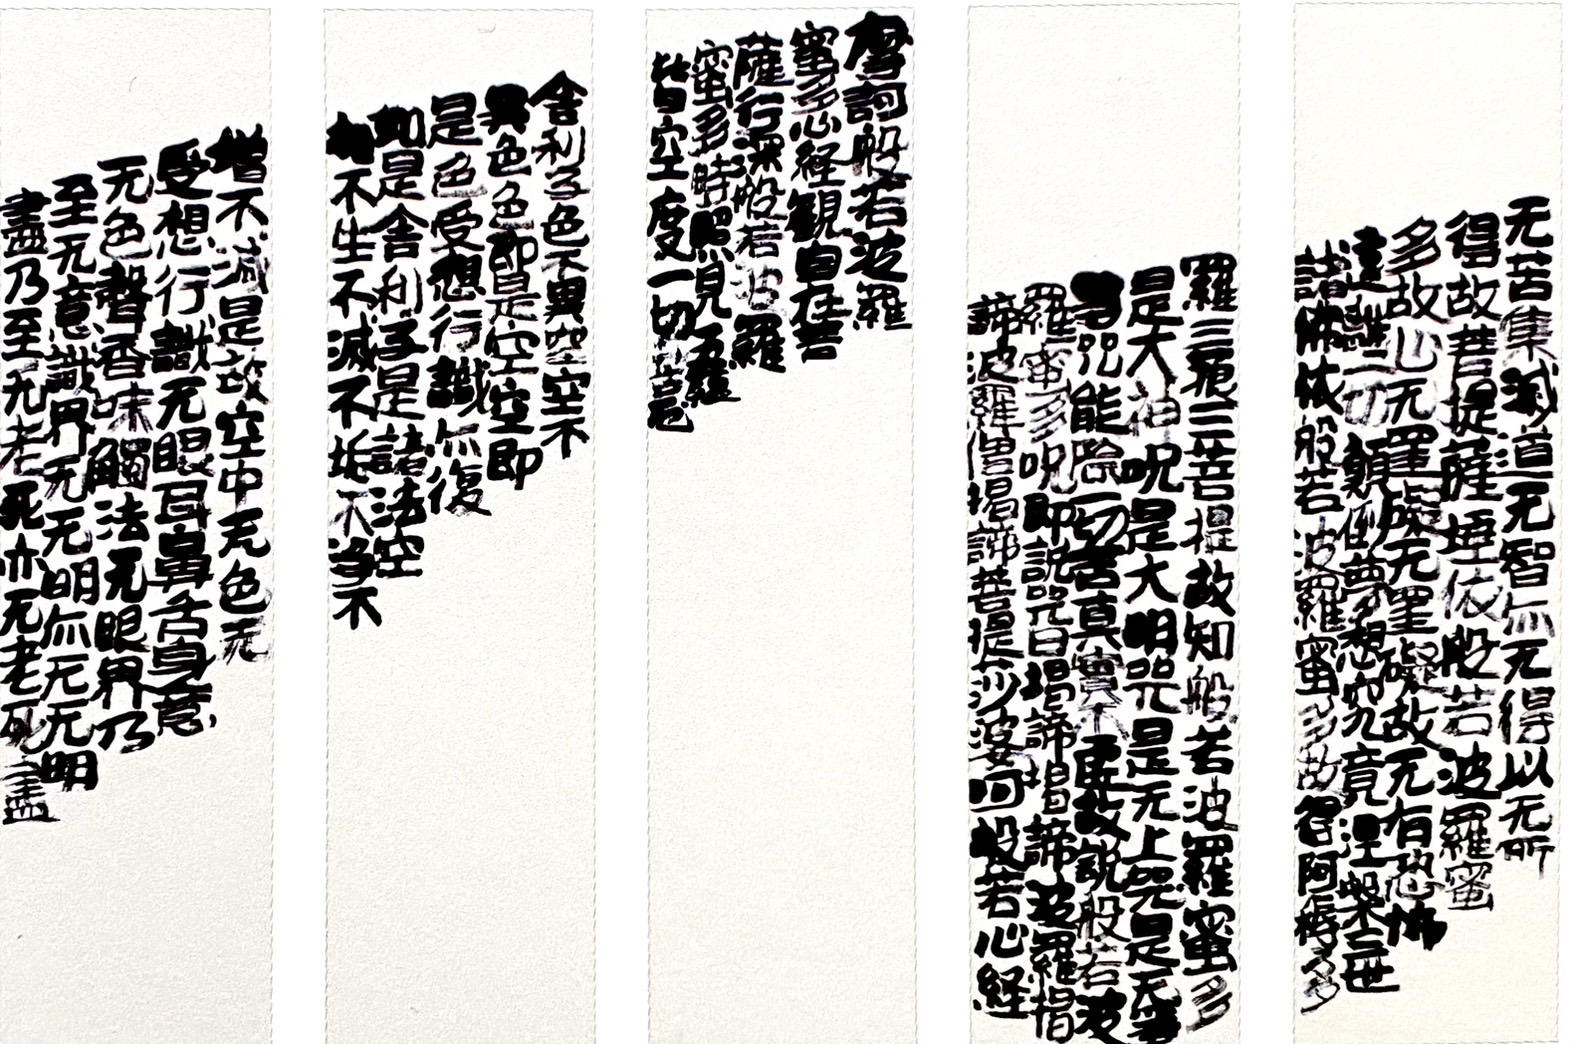 摩訶般若波羅
蜜多心経観自在菩
薩行深般若波羅
蜜多時照見五蘊
皆空度一切苦厄
舎利子色不異空空不
異色色即是空空即
是色受想行識亦復
如是舎利子是諸法空
相不生不滅不垢不净不
增不減是故空中无色无
受想行識无眼耳鼻舌身意
无色聲香味觸法无眼界乃
至无意識界无无明亦无无明
盡乃至无老死亦无老死盡
无苦集滅道无智亦无得以无所
得故菩提薩埵依般若波羅蜜
多故心无罣礙无罣礙故无有恐怖
遠離一切顛倒夢想究竟涅槃三世
諸佛依般若波羅蜜多故得阿耨多
羅三藐三菩提故知般若波羅蜜多
是大神呪是大明咒是无上咒是无等
等咒能除一切苦真實不虚故説般若波
羅蜜多呪即説咒曰揭諦揭諦波羅揭
諦波羅僧揭諦菩提莎婆呵般若心経